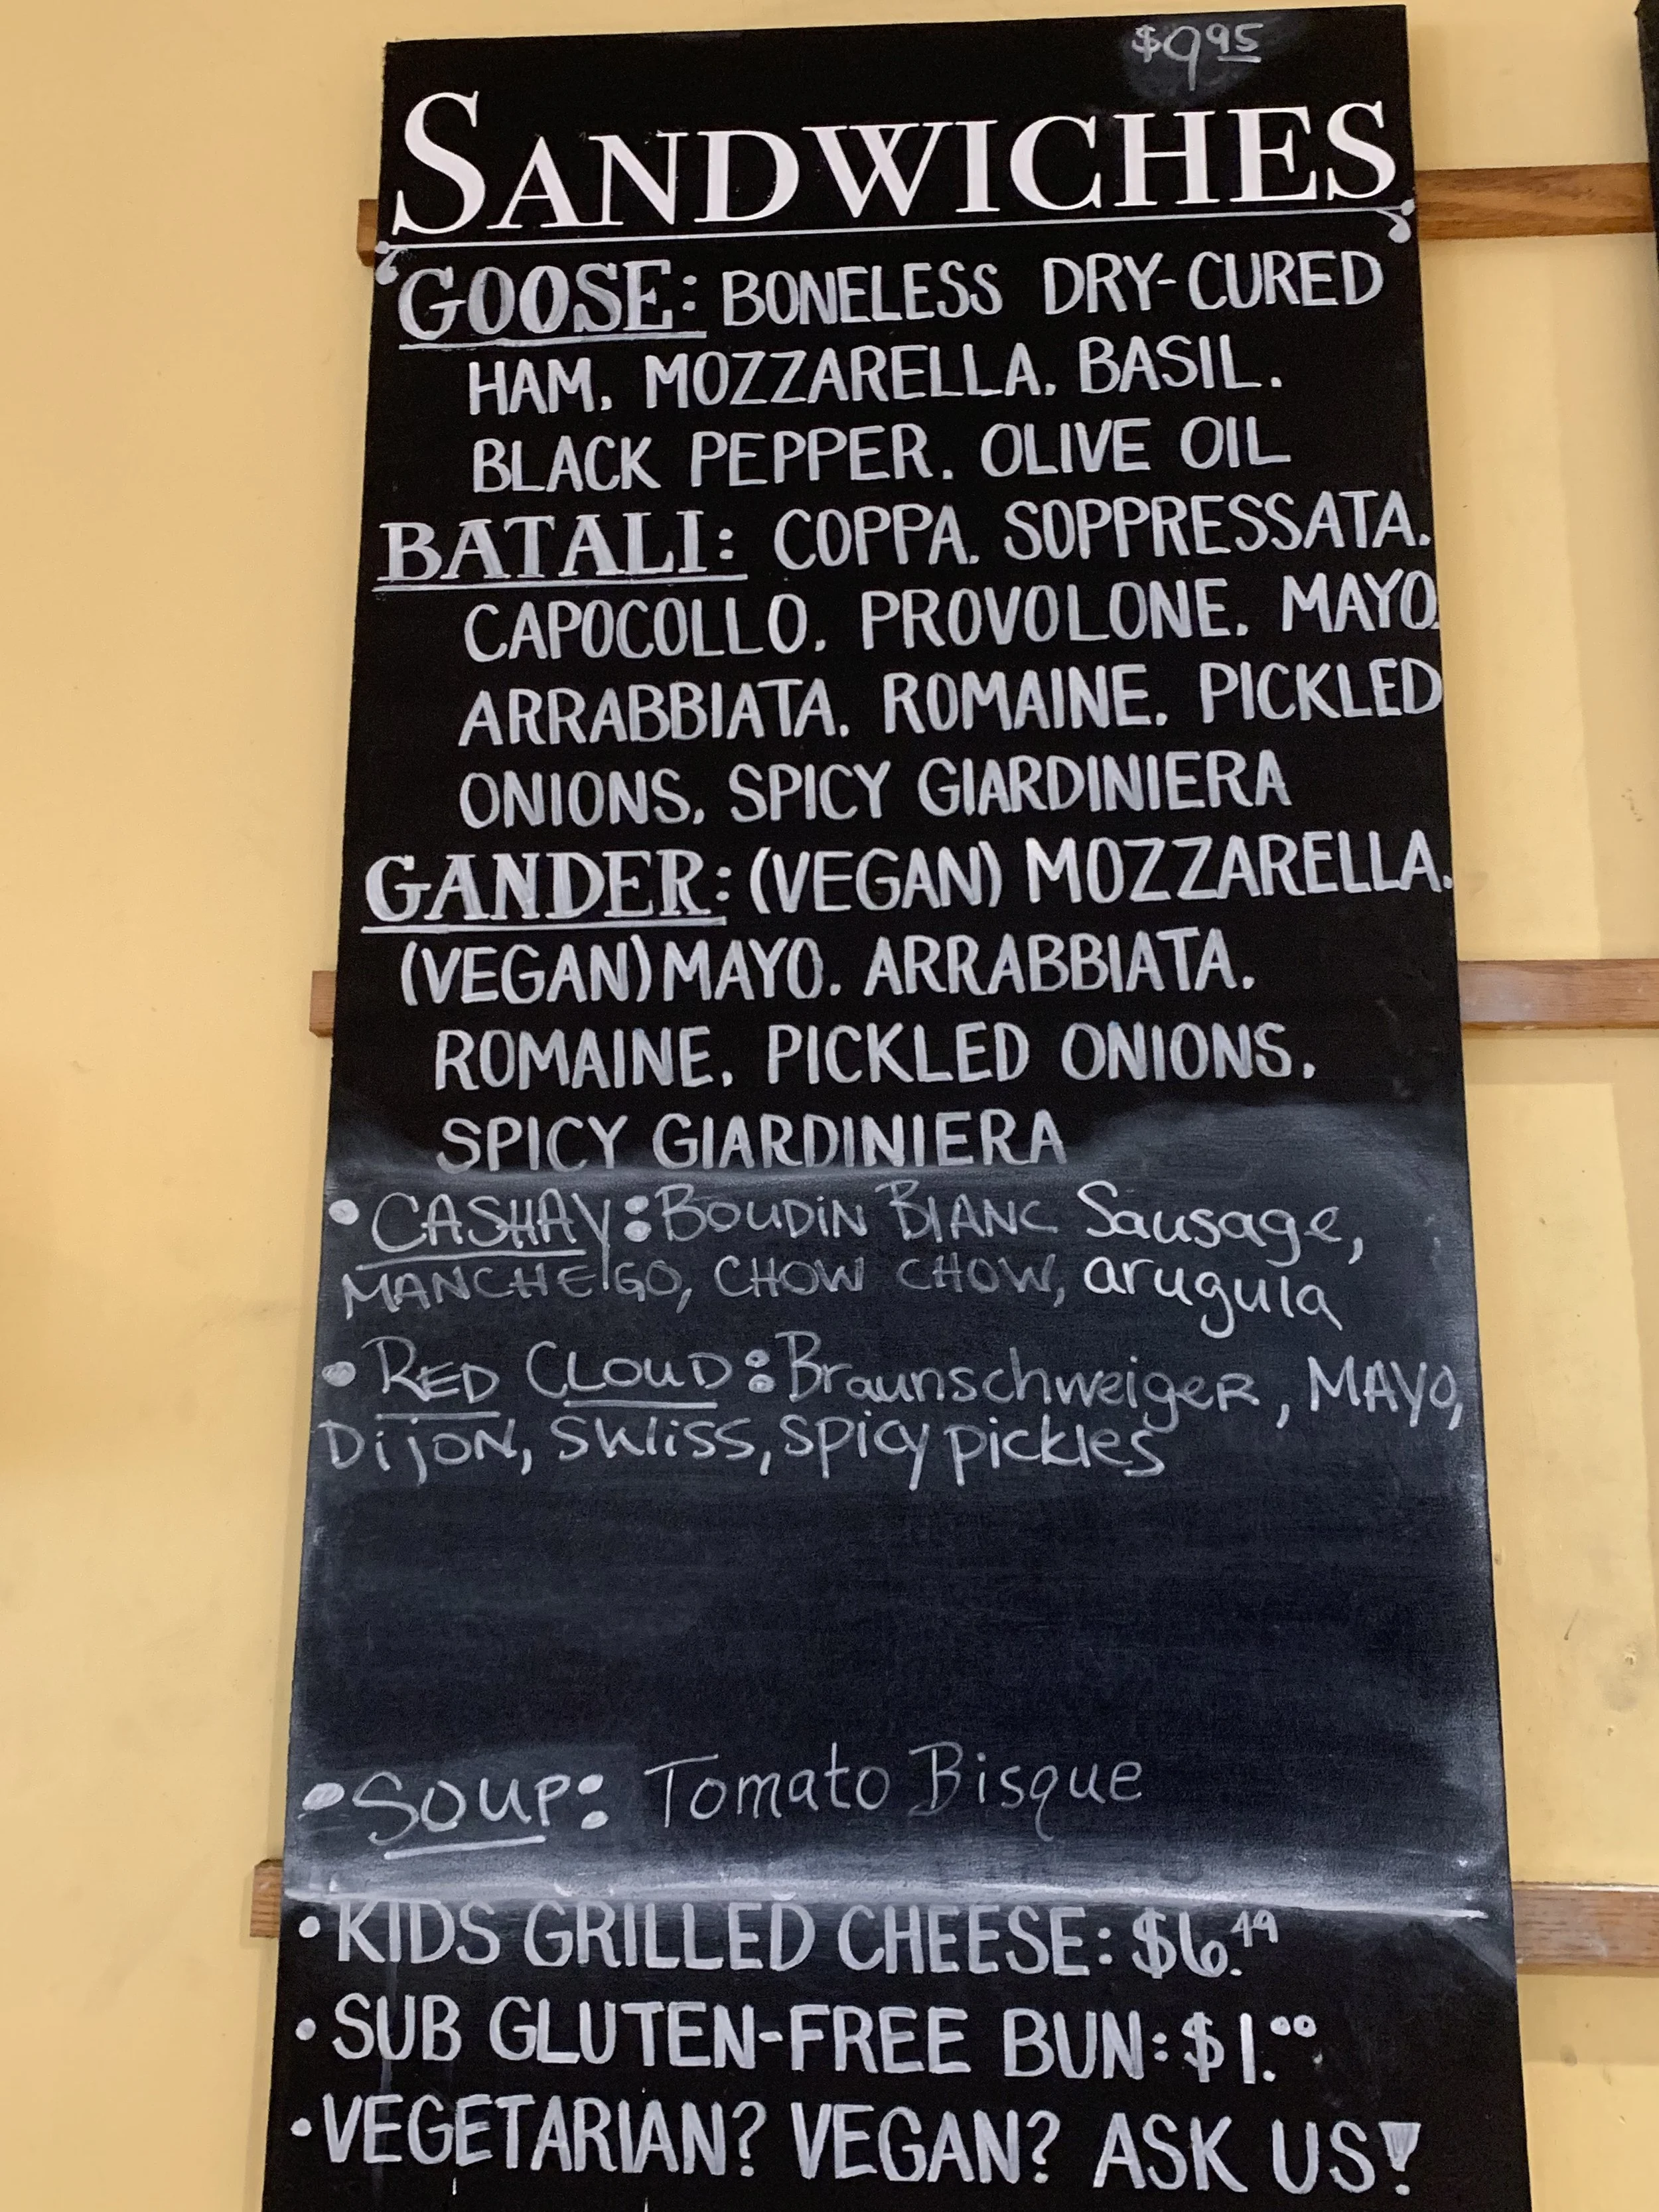 $9 95
SANDWICHES
GOOSE: BONELESS DRY-CURED
HAM, MOZZARELLA, BASIL,
BLACK PEPPER, OLIVE OIL
BATALI: COPPA, SOPPRESSATA,
CAPOCOLLO, PROVOLONE, MAYO,
ARRABBIATA, ROMAINE, PICKLED
ONIONS, SPICY GIARDINIERA
GANDER: (VEGAN) MOZZARELLA,
(VEGAN) MAYO, ARRABBIATA,
ROMAINE, PICKLED ONIONS,
SPICY GIARDINIERA
• CASHAY: BOUDIN BLANC Sausage,
MANCHEGO, CHOW CHOW, arugula
• RED CLOUD: BraunschweigeR, MAYO,
DijON, SWiss, spicy pickles
• SOUP: Tomato Bisque
• KIDS GRILLED CHEESE: $6.49
• SUB GLUTEN-FREE BUN: $1.00
• VEGETARIAN? VEGAN? ASK US!